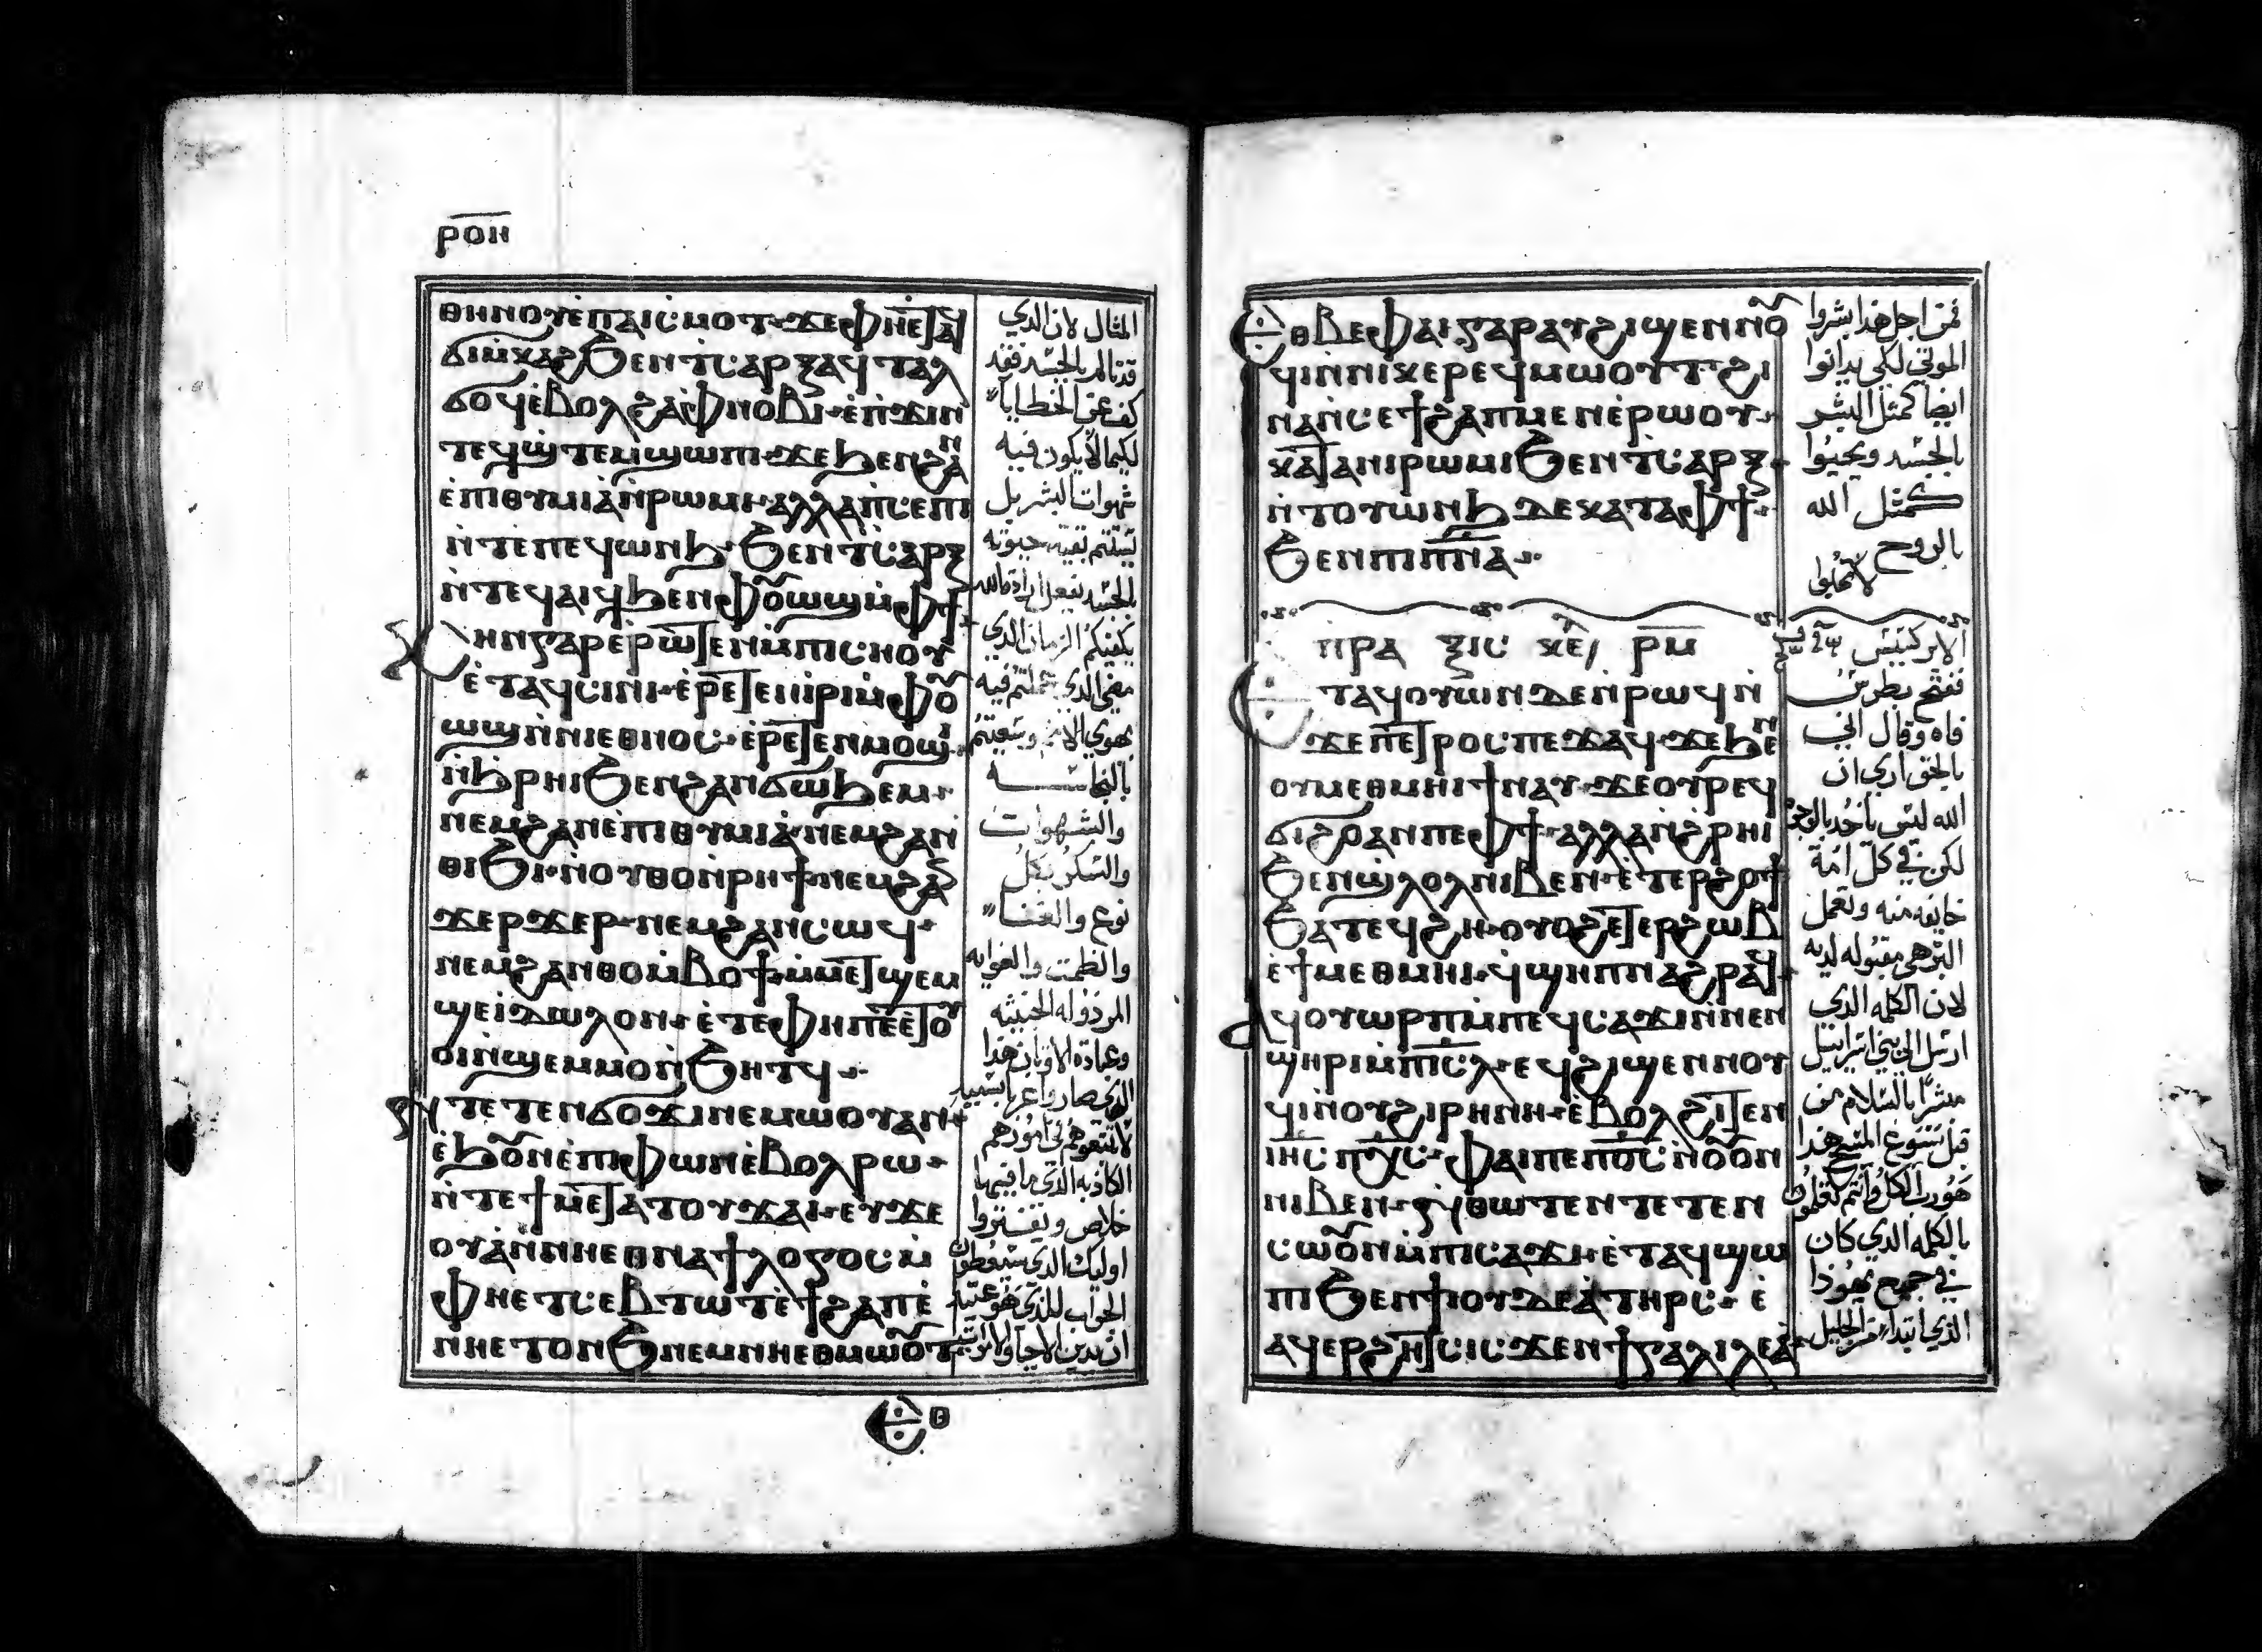 ⲣⲟⲏ
ⲑⲏⲛⲟⲩ ⲉ̀ⲡⲁⲓⲥⲙⲟⲧ ϫⲉ ⲫⲏⲉ̀ⲧⲁϥ
ϭⲓⲙ̀ⲕⲁϩ ϧⲉⲛ ⲧⲥⲁⲣⲝ ⲁϥⲧⲁⲗ
ϭⲟϥ ⲉ̀ⲃⲟⲗ ϩⲁ ⲫⲛⲟⲃⲓ ⲉ̀ⲡϫⲓⲛ
ⲧⲉϥϣ̀ⲧⲉⲙϣⲱⲡⲓ ϫⲉ ϧⲉⲛ ϩⲁⲛ
ⲉ̀ⲡⲓⲑⲩⲙⲓⲁ ⲛ̀ⲣⲱⲙⲓ ⲁⲗⲗⲁ ⲡ̀ⲥⲉⲡⲓ
ⲛ̀ⲧⲉ ⲡⲉϥⲱⲛϧ ϧⲉⲛ ⲧⲥⲁⲣⲝ
ⲛ̀ⲧⲉϥⲁⲓϥ ϧⲉⲛ ⲫⲟⲩⲱϣ ⲙ̀ⲫϯ
ⲕⲏⲛ ⲅⲁⲣ ⲉ̀ⲣⲱⲧⲉⲛ ⲙ̀ⲡⲓⲥⲏⲟⲩ
ⲉ̀ⲧⲁϥⲥⲓⲛⲓ ⲉ̀ⲣⲉⲧⲉⲛⲓⲣⲓ ⲙ̀ⲫⲟⲩ
ⲱϣ ⲛ̀ⲛⲓⲉⲑⲛⲟⲥ ⲉ̀ⲣⲉⲧⲉⲛⲙⲟϣⲓ
ⲛ̀ϧⲣⲏⲓ ϧⲉⲛ ϩⲁⲛϭⲱϧⲉⲙ
ⲛⲉⲙ ϩⲁⲛⲉ̀ⲡⲓⲑⲩⲙⲓⲁ ⲛⲉⲙ ϩⲁⲛ
ⲑⲓϧⲓ ⲛ̀ⲟⲩⲑⲟ ⲛ̀ⲣⲏϯ ⲛⲉⲙ ϩⲁⲛ
ϫⲉⲣϫⲉⲣ ⲛⲉⲙ ϩⲁⲛⲥⲱϥ
ⲛⲉⲙ ϩⲁⲛⲑⲟ ⲙ̀ⲃⲟϯ ⲙ̀ⲙⲉⲧϣⲉⲙ
ϣⲉ ⲓ̀ⲇⲱⲗⲟⲛ ⲉ̀ⲧⲉ ⲫⲏ ⲡⲉ ⲉ̀ⲧⲟⲩ
ⲟⲓ ⲛ̀ϣⲉⲙⲙⲟ ⲛ̀ϧⲏⲧϥ
ⲛ̀ⲧⲉⲧⲉⲛϭⲟϫⲓ ⲛⲉⲙⲱⲟⲩ ⲁⲛ
ⲉ̀ϧⲟⲩⲛ ⲉ̀ⲡⲓⲫⲱⲛ ⲉ̀ⲃⲟⲗ ⲣⲱ
ⲛ̀ⲧⲉ ϯⲙⲉⲧⲁⲧⲟⲩϫⲁⲓ ⲉⲩϫⲉ
ⲟⲩⲁ̀ ⲛ̀ⲛⲏⲉⲑⲛⲁϯⲗⲟⲅⲟⲥ ⲙ̀
ⲫⲏⲉⲧⲥⲉⲃⲧⲱⲧ ⲉ̀ϯϩⲁⲡ ⲉ̀
ⲛⲏⲉⲧⲟⲛϧ ⲛⲉⲙ ⲛⲏⲉⲑⲙⲱⲟⲩⲧ
ⲉⲑ
المثال لان الذي
قد تالم بالجسد فقد
كف عن الخطايا
لكيما لا يكون فيه
شهوات البشر بل
يستتم بقية حيوته
بالجسد بفعل ارادة الله
يكفيكم الزمان الذي
مضى الذي عملتم فيه
بهوى الامم وسعيتم
بالنجاسه
والشهوات
والسكر بكل
نوع والغنا
والطمث والغوايه
المرذوله الخبيثه
وعبادة الاوثان هذا
الذي صاروا غربا بسببه
لا تتبعوهم في امورهم
الكاذبه الذي ما فيها
خلاص ويفتروا
اوليك الذي سيعطون
الجواب للذي هو عتيد
ان يدين الاحيا والاموات
ⲉⲑⲃⲉ ⲫⲁⲓ ⲅⲁⲣ ⲁⲩϩⲓϣⲉⲛⲛⲟⲩ
ϥⲓ ⲛ̀ⲛⲓⲕⲉⲣⲉϥⲙⲱⲟⲩⲧ ϩⲓ
ⲛⲁ ⲛ̀ⲥⲉϯϩⲁⲡ ⲙⲉⲛ ⲉ̀ⲣⲱⲟⲩ
ⲕⲁⲧⲁ ⲛⲓⲣⲱⲙⲓ ϧⲉⲛ ⲧⲥⲁⲣⲝ
ⲛ̀ⲧⲟⲩⲱⲛϧ ⲇⲉ ⲕⲁⲧⲁ ⲫϯ
ϧⲉⲛ ⲡⲓⲡⲛⲁ
ⲡⲣⲁⲝⲓⲥ ⲕⲉ ⲣⲙ
ⲉ̀ⲧⲁϥⲟⲩⲱⲛ ⲇⲉ ⲛ̀ⲣⲱϥ ⲛ̀
ϫⲉ ⲡⲉⲧⲣⲟⲥ ⲡⲉϫⲁϥ ϫⲉ ϧⲉⲛ
ⲟⲩⲙⲉⲑⲙⲏⲓ ϯⲛⲁⲩ ϫⲉ ⲟⲩⲣⲉϥ
ϭⲓϩⲟ ⲁⲛ ⲡⲉ ⲫϯ ⲁⲗⲗⲁ ⲛ̀ϩⲣⲏⲓ
ϧⲉⲛ ϣⲗⲟⲗ ⲛⲓⲃⲉⲛ ⲉ̀ⲧⲉⲣϩⲟϯ
ϧⲁⲧⲉϥϩⲏ ⲟⲩⲟϩ ⲉ̀ⲧⲉⲣϩⲱⲃ
ⲉ̀ϯⲙⲉⲑⲙⲏⲓ ϥ̀ϣⲏⲡ ⲛⲁϩⲣⲁϥ
ⲁϥⲟⲩⲱⲣⲡ ⲙ̀ⲡⲉϥⲥⲁϫⲓ ⲛ̀ⲛⲉⲛ
ϣⲏⲣⲓ ⲙ̀ⲡⲓⲥⲗ ⲉϥϩⲓϣⲉⲛⲛⲟⲩ
ϥⲓ ⲛ̀ⲟⲩϩⲓⲣⲏⲛⲏ ⲉ̀ⲃⲟⲗ ϩⲓⲧⲉⲛ
ⲓⲏⲥ ⲡⲭⲥ ⲫⲁⲓ ⲡⲉ ⲡⲟⲥ ⲛ̀ⲟⲩⲟⲛ
ⲛⲓⲃⲉⲛ ⲛ̀ⲑⲱⲧⲉⲛ ⲧⲉⲧⲉⲛ
ⲥⲱⲟⲩⲛ ⲙ̀ⲡⲓⲥⲁϫⲓ ⲉ̀ⲧⲁϥϣⲱ
ⲡⲓ ϧⲉⲛ ϯⲓⲟⲩⲇⲉⲁ ⲧⲏⲣⲥ ⲉ̀
ⲁϥⲉⲣϩⲏⲧⲥ ⲓⲥϫⲉⲛ ϯⲅⲁⲗⲓⲗⲉⲁ
فمن اجل هذا بشروا
الموتى لكي يدانوا
ايضا كمثل البشر
بالجسد ويحيوا
كمثل الله
بالروح
لا تحبوا
الابركسيس
ففتح بطرس
فاه وقال اني
بالحق ارى ان
الله ليس ياخذ بالوجوه
لكن في كل امة
خايفه منه وتعمل
البر هي مقبوله لديه
لان الكلمه الذي
ارسل الى بني اسراييل
مبشرا بالسلام من
قبل يسوع المسيح هذا
هو رب الكل وانتم تعلمون
بالكلمه الذي كان
في جميع يهوذا
الذي ابتدا من الجليل